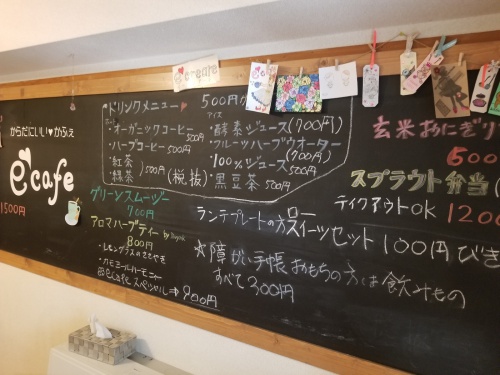 e create
からだにいい♥かふぇ
e cafe
1500円
ドリンクメニュー♥ 500円
・オーガニックコーヒー 500円
・ハーブコーヒー 500円
・紅茶
・緑茶 500円 (税抜)
アイス
・酵素ジュース(700円)
・フルーツハーブウオーター(700円)
・100%ジュース 500円
・黒豆茶 500円
グリーンスムージー
700円
アロマハーブティー by
800円
・レモングラスのささやき
・カモミールハーモニー
ecafeスペシャル⇒900円
ランチプレートの方 ロースイーツセット 100円びき
☆障がい手帳おもちの方は飲みもの
すべて300円
玄米おにぎり
500
スプラウト弁当
テイクアウトOK 1200